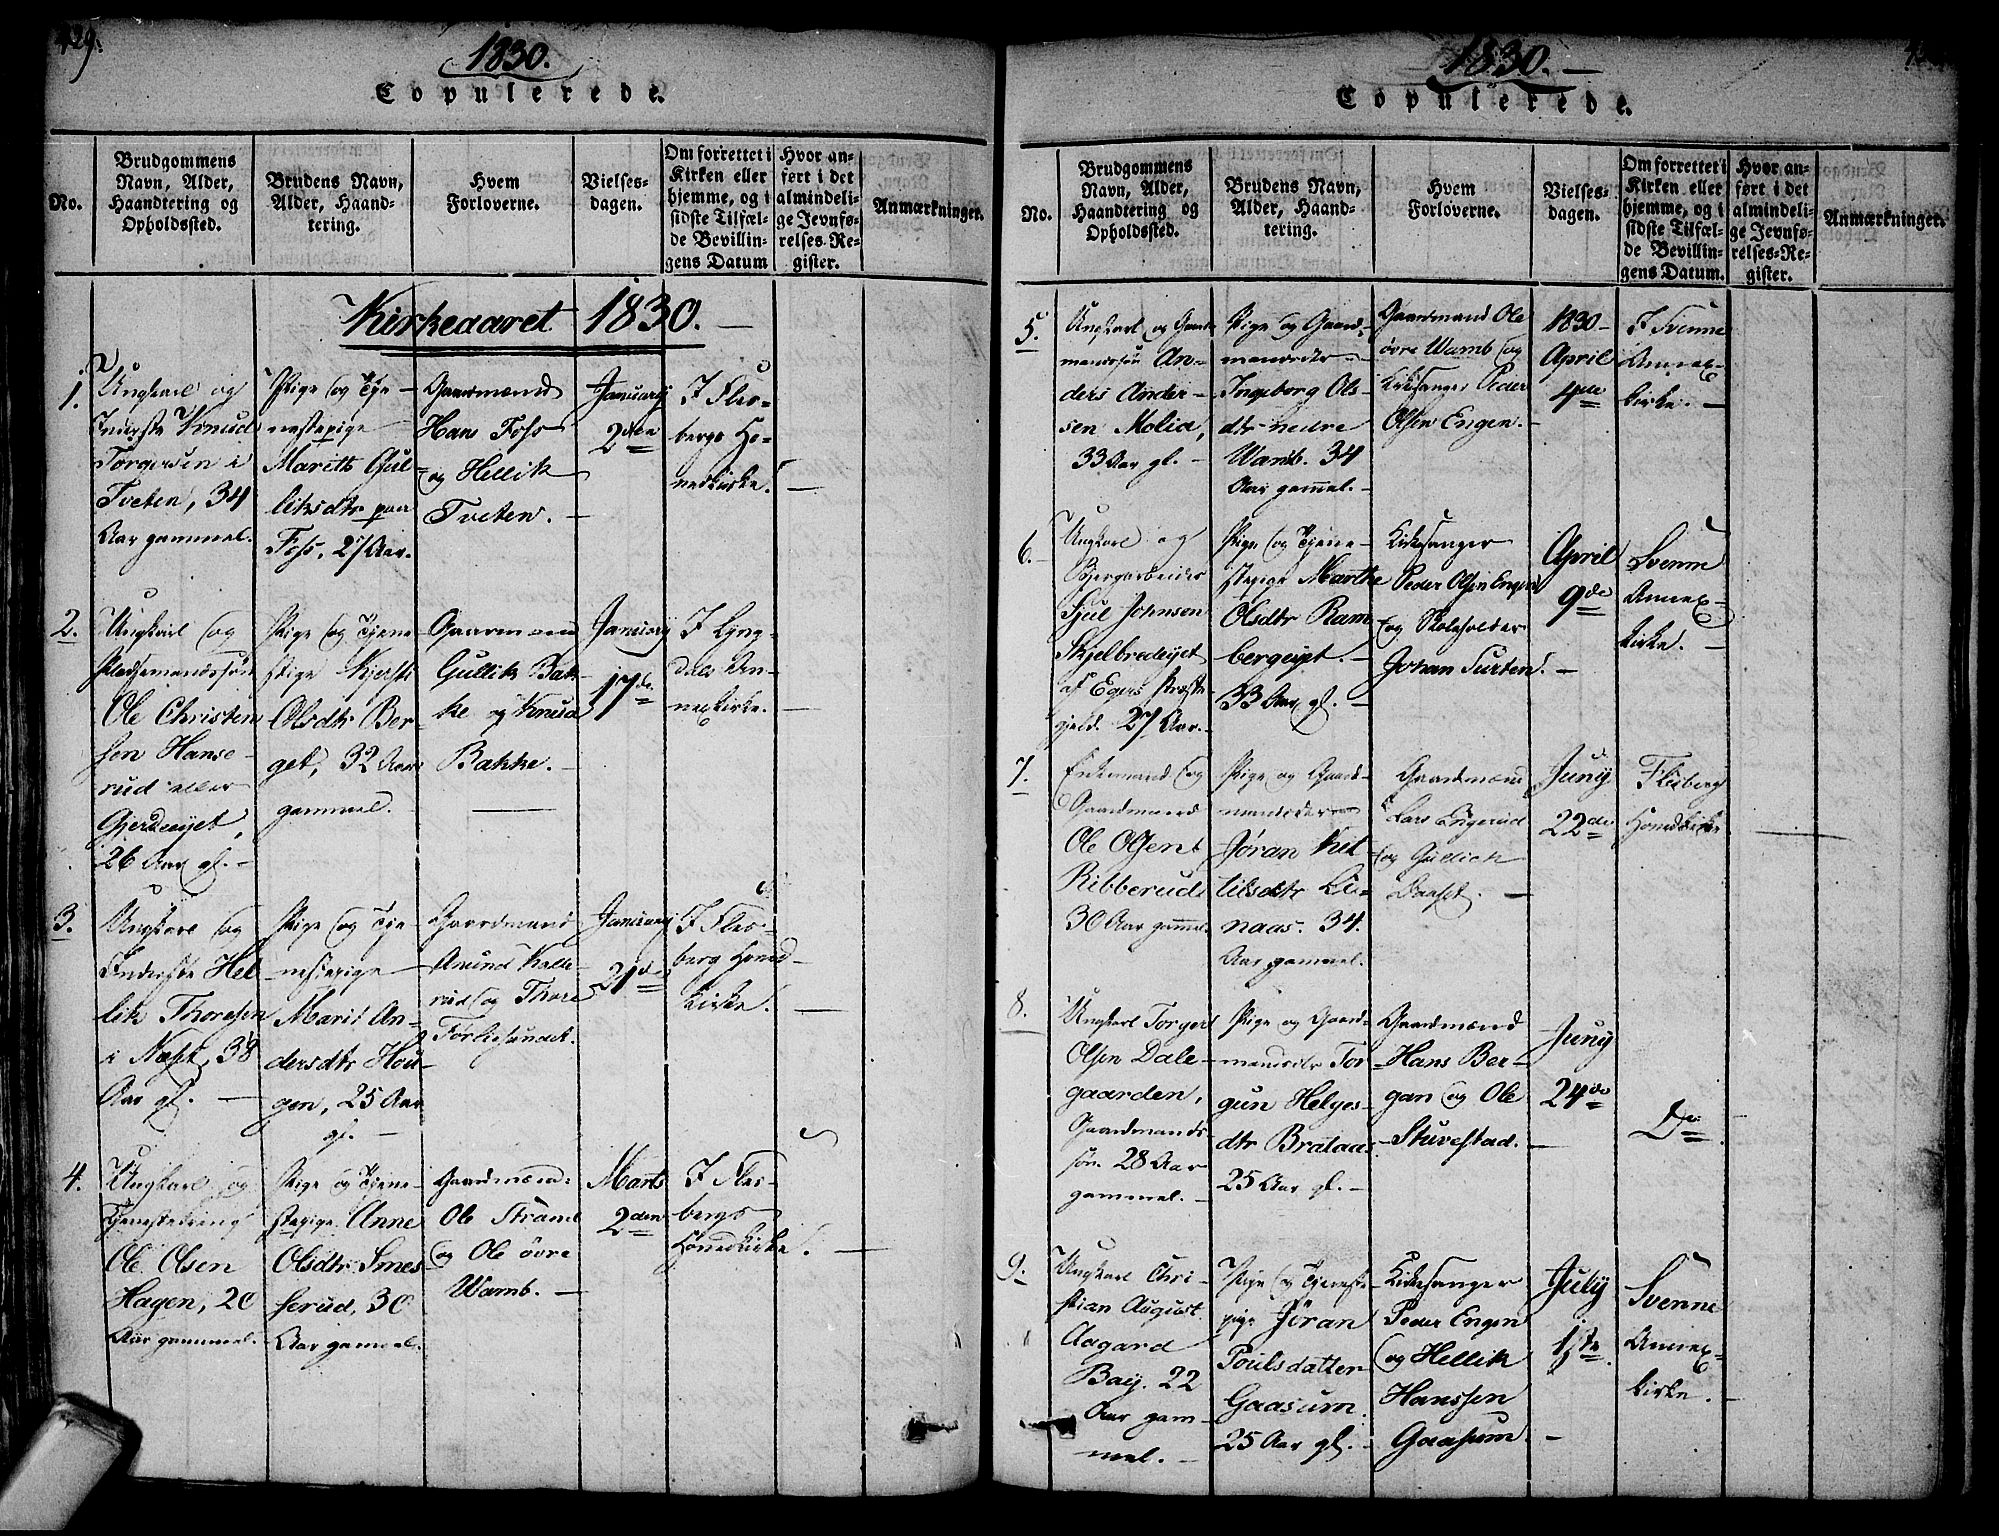 429.
1830.
Copulerede.
No.
Brudgommens
Navn, Alder,
Haandtering og
Opholdssted.
Brudens Navn,
Alder, Haand-
tering.
Hvem
Forloverne.
Vielses-
dagen.
Om forrettet i
Kirken eller
hjemme, og i
sidste Tilfæl-
de Bevillin-
gens Datum
Hvor an-
ført i det
almindeli-
ge Jevnfø-
relses-Re-
gister.
Anmærkninger.
Kirkeaaret 1830.
1.
Ungkarl og
Inderste Knud
Torgersen i
Tveten, 34
Aar gammel.
Pige og Tje-
nestepige
Marith Gul-
liksdtr paa
Foss, 27 Aar.
Gaardmænd
Hans Foss
og Hellik
Tveten.
January
2den
I Fles-
bergs Ho-
vedkirke.
2.
Ungkarl og
Pladsemandssøn
Ole Christen
sen Hanse-
rud eller
Gjerdeeyet,
26 Aar gl.
Pige og Tjene
stpige Kjersti
Olsdtr Ber-
get, 32 Aar
gammel.
Gaardmænd
Gullik Bak-
ke og Knud
Bakke.
January
17de
I Lyng-
dals An-
nexkirke.
3.
Ungkarl og
Inderste Hel-
lik Thoresen
i Næset, 38
Aar gl.
Pige og Tje-
nestepige
Marit An-
dersdtr Hou-
gen, 25 Aar
gl.
Gaardmænd
Amund Kalle-
rud og Thore
Førliesundet.
January
21de
I Fles-
berg Hoved-
kirke.
4.
Ungkarl og
Tjenestedreng
Ole Olsen
Hagen, 20
Aar gammel.
Pige og Tjene-
stepige Anne
Olsdtr Smes-
serud, 30
Aar gammel.
Gaardmænd
Ole Strand
og Ole øvre
Wamb.
Marts
2den
I Fles-
bergs
Hovedkirke.
1830.
Copulerede.
No.
Brudgommens
Navn, Alder,
Haandtering og
Opholdssted.
Brudens Navn,
Alder, Haand-
tering.
Hvem
Forloverne.
Vielses-
dagen.
Om forrettet i
Kirken eller
hjemme, og i
sidste Tilfæl-
de Bevillin-
gens Datum.
Hvor an-
ført i det
almindeli-
ge Jevnfø-
relses-Re-
gister.
Anmærkninger.
5.
Ungkarl og Gaard-
mandssøn An-
ders Ander-
sen Molia,
33 Aar gl.
Pige og Gaard-
mandsdtr
Ingeborg Ols-
dtr nedre
Wamb. 34
Aar gammel.
Gaardmænd Ole
øvre Wamb og
Kirkesanger Peder
Olsen Engen.
1830
April
4de
I Svenne
Annex-
kirke.
6.
Ungkarl og
Bjergarbeider
Sjul Johnsen
Skjelbredeyet
af Egers Præste-
gjeld. 27 Aar.
Pige og Tjene-
stepige Marthe
Olsdtr Ram-
bergeyet.
33 Aar gl.
Kirkesanger
Peder Olsen Engen
og Skoleholder
Johan Turten.
April
9de
Svenne
Annex-
kirke.
7.
Enkemand og
Gaardmand
Ole Olsen
Ribberud
30 Aar gammel.
Pige og Gaard-
mandsdtr
Jøran Kit-
tilsdtr Lie-
naas. 34.
Aar gammel.
Gaardmænd
Lars Engerud
og Gullick
Daaset.
Juny
22de
Flesberg
Hovedkirke
8.
Ungkarl Torger
Olsen Dale-
gaarden,
Gaardmands-
søn. 28 Aar
gammel.
Pige og Gaard-
mandsdtr Tor-
gun Helges-
dtr Brataas
25 Aar gl.
Gaardmænd
Hans Ber-
gan og Ole
Stuvestad.
Juny
24de
Do
9.
Ungkarl Chri-
stian August
Aagard
Bay. 22
Aar gam-
mel.
Pige og Tjeneste-
pige Jøran
Poulsdatter
Gaasum.
25 Aar gl.
Kirkesanger
Peder Engen
og Hellik
Hanssen
Gaasum.
July
1ste
Svenne
Annex-
kirke.